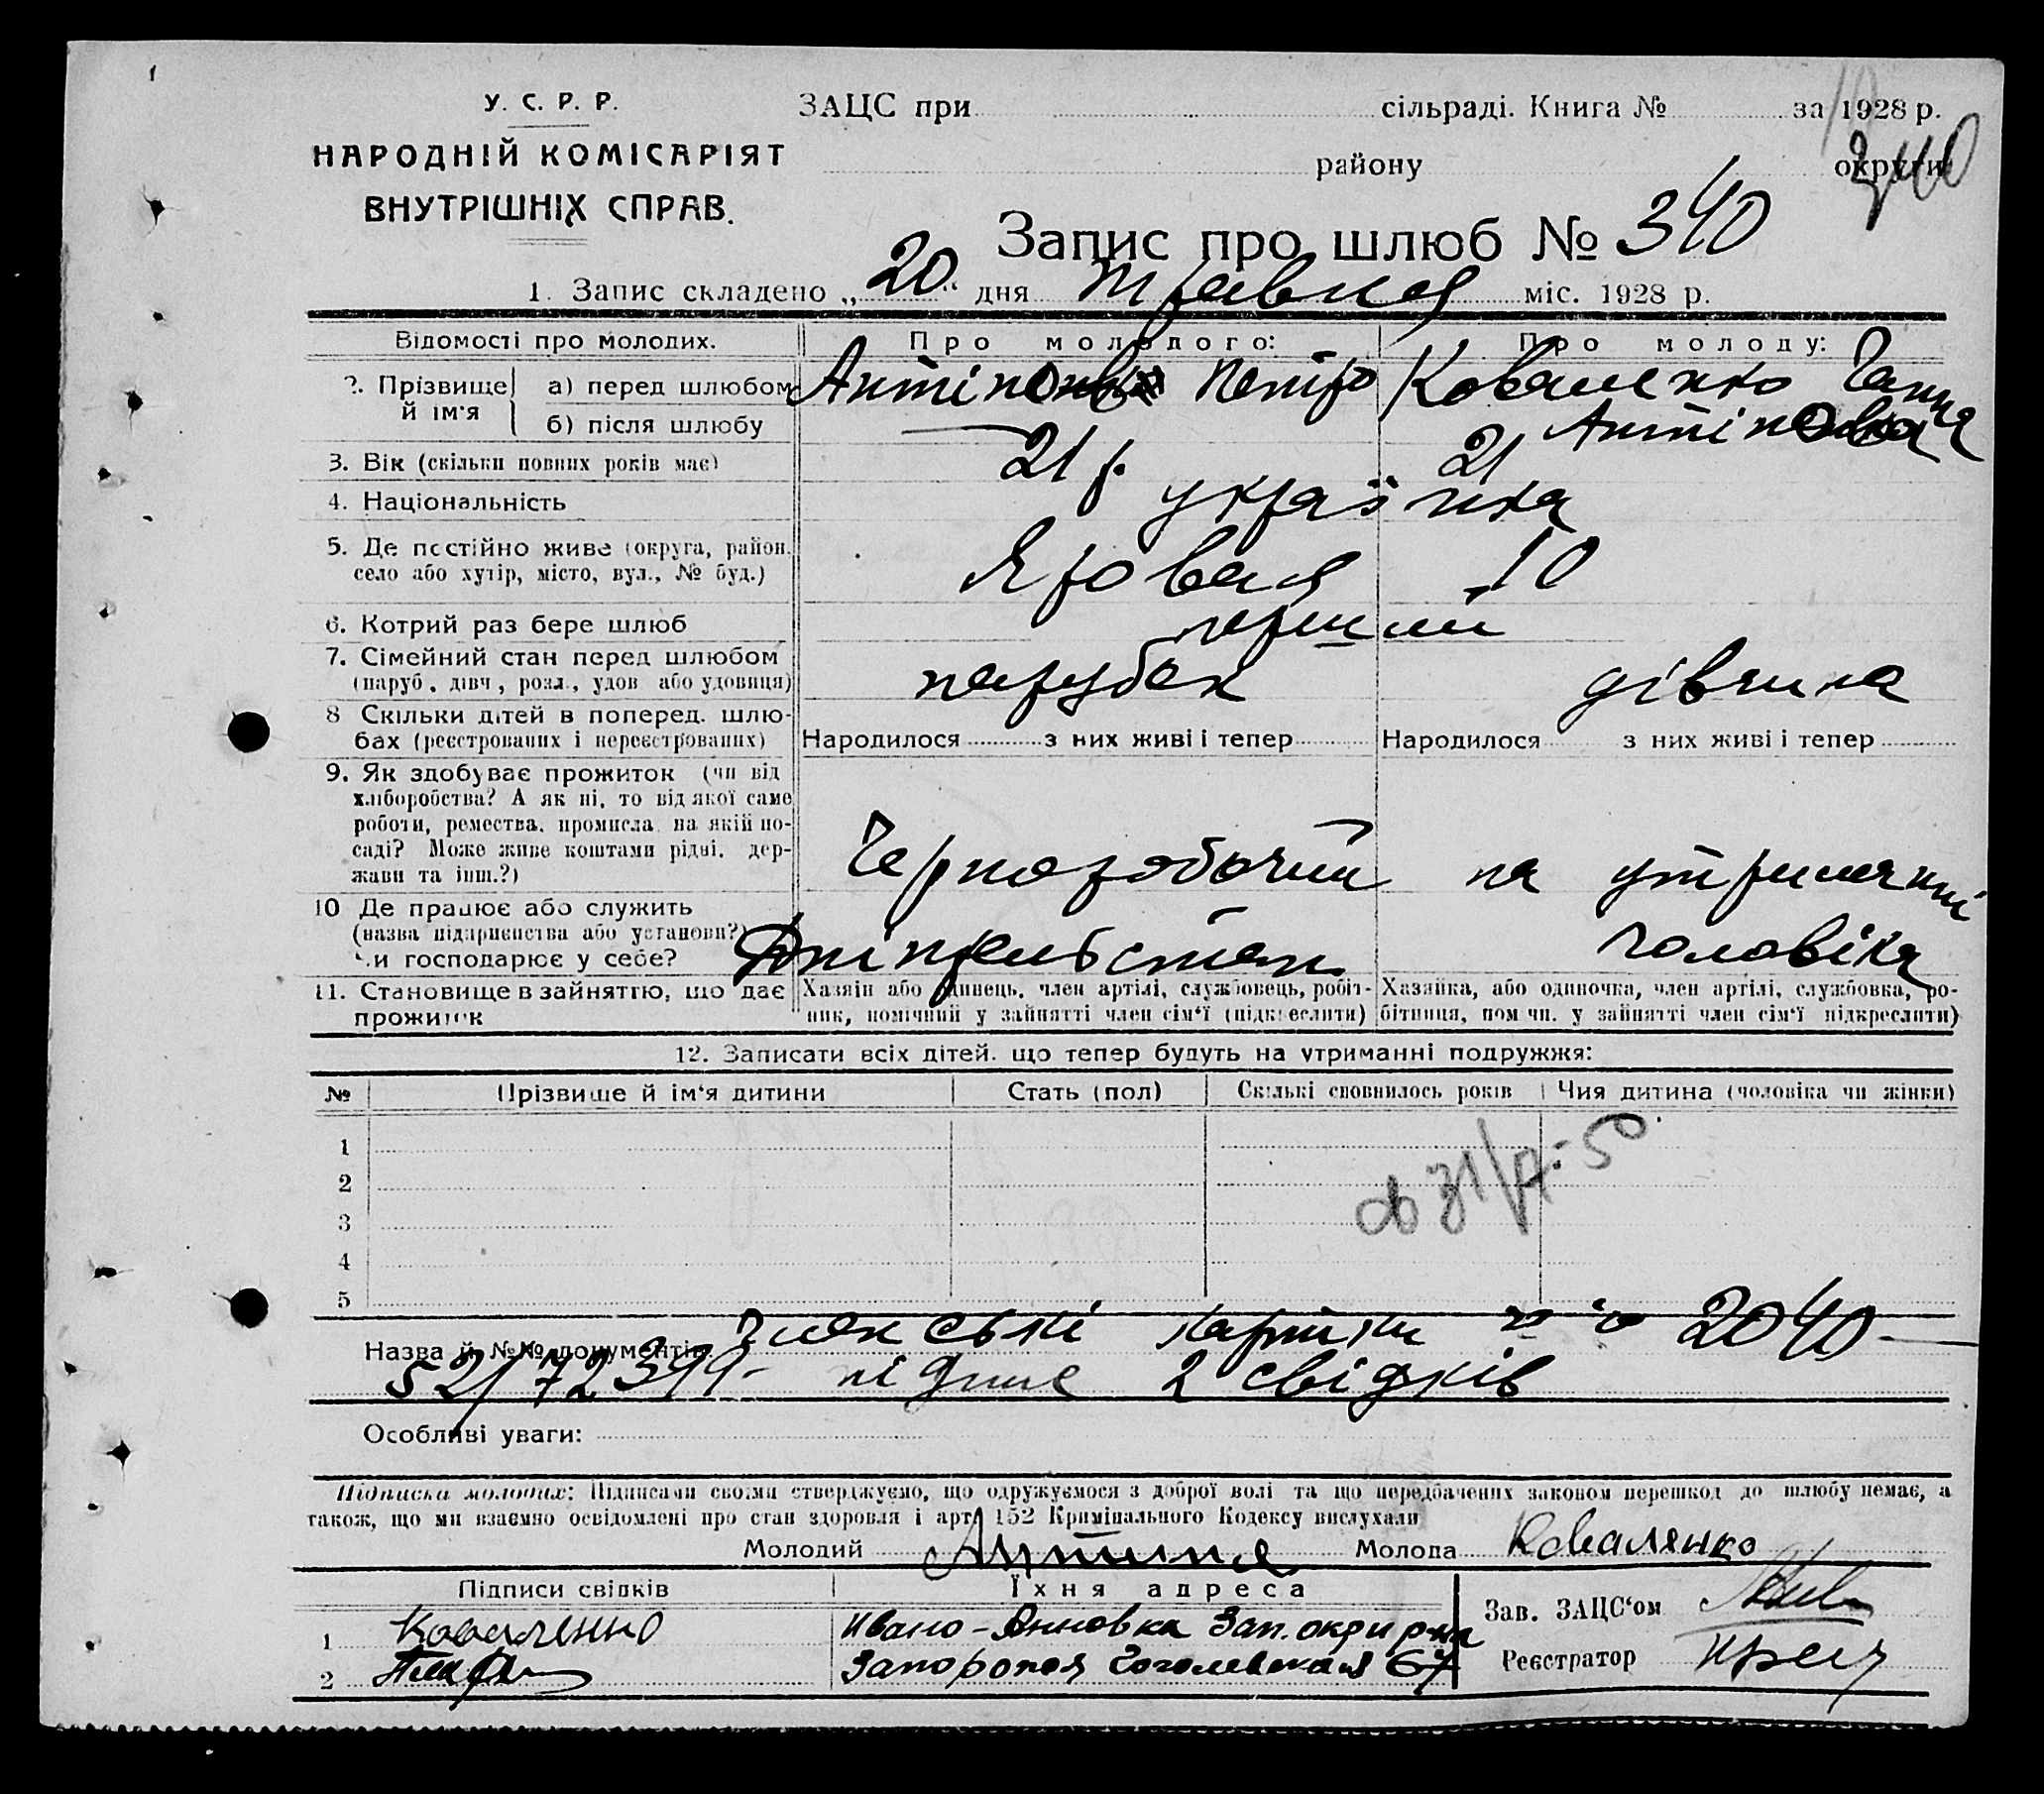 У. С. Р. Р.
НАРОДНІЙ КОМІСАРІЯТ
ВНУТРІШНІХ СПРАВ.
ЗАЦС при сільраді. Книга № за 1928 р.
району округи
340
Запис про шлюб № 340
1. Запис складено „20" дня травня міс. 1928 р.
Відомості про молодих. Про молодого: Про молоду:
2. Прізвище й ім'я а) перед шлюбом Петро Коваленко Ганна
б) після шлюбу — Антіпова
3. Вік (скільки повних років має) 21 р. 21
4. Національність українка
5. Де постійно живе (округа, район,
село або хутір, місто, вул., № буд.) Яровая 10
6. Котрий раз бере шлюб перший
7. Сімейний стан перед шлюбом
(паруб., дівч., розл., удов. або удовиця) парубок дівчина
8 Скільки дітей в поперед. шлю-
бах (реєстрованих і нереєстрованих) Народилося з них живі і тепер Народилося з них живі і тепер
9. Як здобуває прожиток (чи від
хліборобства? А як ні, то від якої саме
роботи, ремества, промисла, на якій по-
саді? Може живе коштами рідні, дер-
жави та інш.?) Чернорабочий на утриманні
10 Де працює або служить
(назва підприємства або установи?)
чи господарює у себе? Дніпрельбстан чоловіка
11. Становище в зайняттю, що дає
прожиток
Хазяїн або одинець, член артілі, службовець, робіт-
ник, помічний у зайнятті член сім'ї (підкреслити)
Хазяйка, або одиночка, член артілі, службовка, ро-
бітниця, пом чн. у зайнятті член сім'ї підкреслити)
12. Записати всіх дітей, що тепер будуть на утриманні подружжя:
№ Прізвище й ім'я дитини Стать (пол) Скількі сповнилось років Чия дитина (чоловіка чи жінки)
1
2
3
4
5
Назва й №№ документів: картки 2040 —
52/72399- підпис 2 свідків
Особливі уваги:
Підписка молодих: Підписами своїми стверджуємо, що одружуємося з доброї волі та що передбачених законом перешкод до шлюбу немає, а
також, що ми взаємно освідомлені про стан здоровля і арт. 152 Кримінального Кодексу вислухали
Молодий Молода Коваленко
Підписи свідків Їхня адреса
1 Коваленко Ивано-Анновка Зап. окр и р-на
2 Запорожья Гоголевская 67
Зав. ЗАЦС'ом
Реєстратор